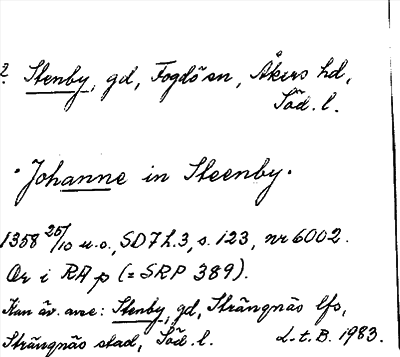 2. Stenby, gd, Fogdö sn, Åkers hd,
Söd. l.
"Johanne in Steenby."
1358 25/10 u.o., SD 7 h. 3, s. 123, nr 6002.
Or i RA p (= SRP 389).
Kan äv. avse: Stenby, gd, Strängnäs lfs,
Strängnäs stad, Söd. l. L-t. B. 1983.